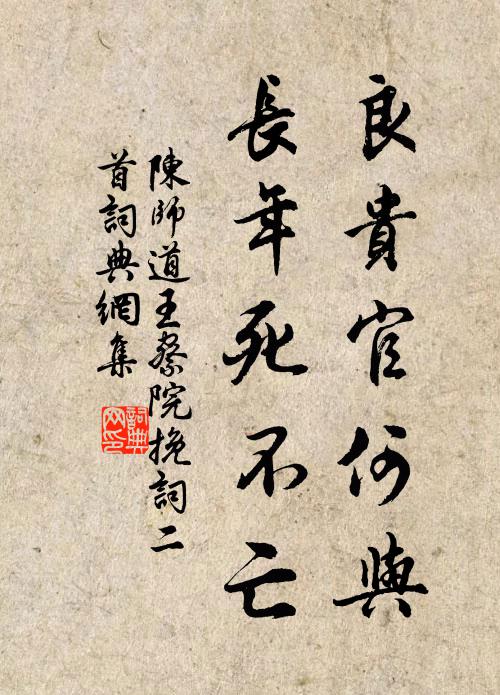 良貴官何與
長年死不亡
陳師道王察院挽詞二
首詞典網集
詞典網印